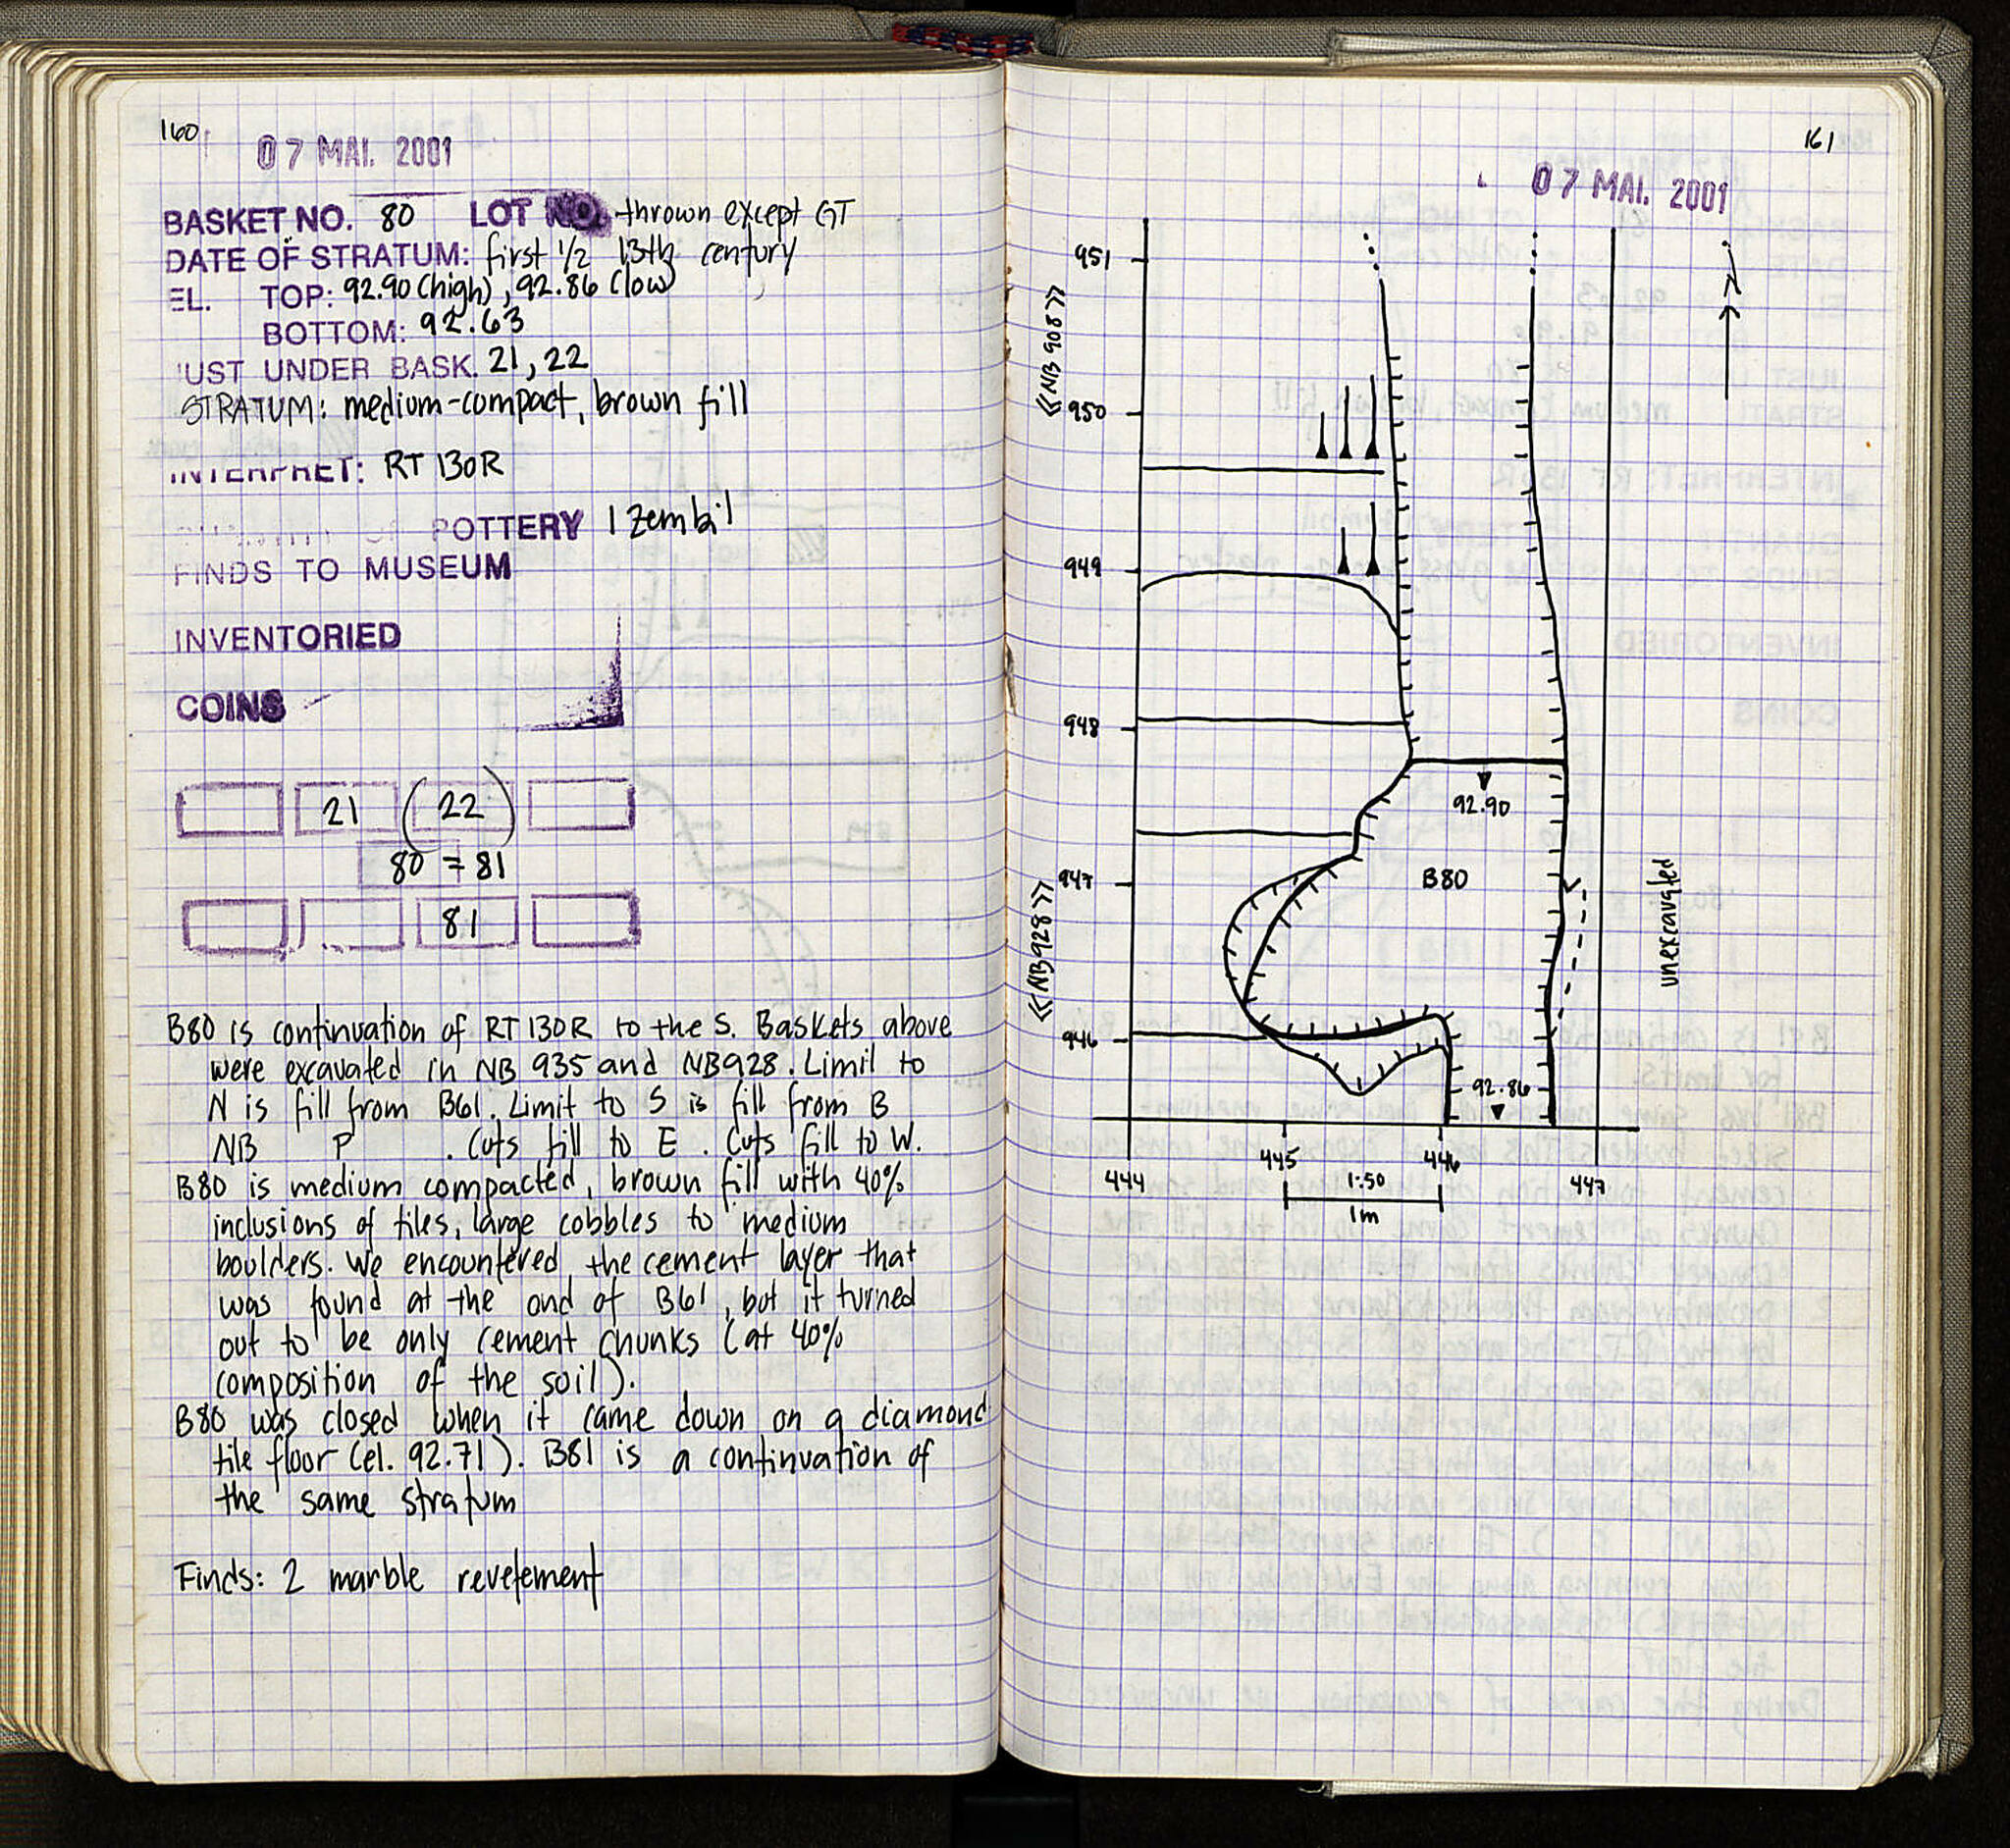 160
07 MAI. 2001
BASKET NO. 80 LOT NO. thrown except GT
DATE OF STRATUM: first 1/2 13th century
EL. TOP: 92.90 (high), 92.86 (low)
BOTTOM: 92.63
UST UNDER BASK. 21, 22
STRATUM: medium-compact, brown fill
INTERPRET: RT 130R
OF POTTERY 1 zembil
FINDS TO MUSEUM
INVENTORIED
COINS –
21 (22)
80 = 81
81
B80 is continuation of RT 130R to the S. Baskets above
were excavated in NB 935 and NB928. Limit to
N is fill from B61. Limit to S is fill from B
NB P . Cuts fill to E . Cuts fill to W.
B80 is medium compacted, brown fill with 40%
inclusions of tiles, large cobbles to medium
boulders. We encountered the cement layer that
was found at the end of B61, but it turned
out to be only cement chunks (at 40%
composition of the soil).
B80 was closed when it came down on a diamond
tile floor (el. 92.71). B81 is a continuation of
the same stratum
Finds: 2 marble revetement
161
07 MAI. 2001
951
<<NB 908>>
950
949
948
92.90
947
B80
unexcavated
<<NB928>>
946
92.86
444
445
446
447
1:50
1m